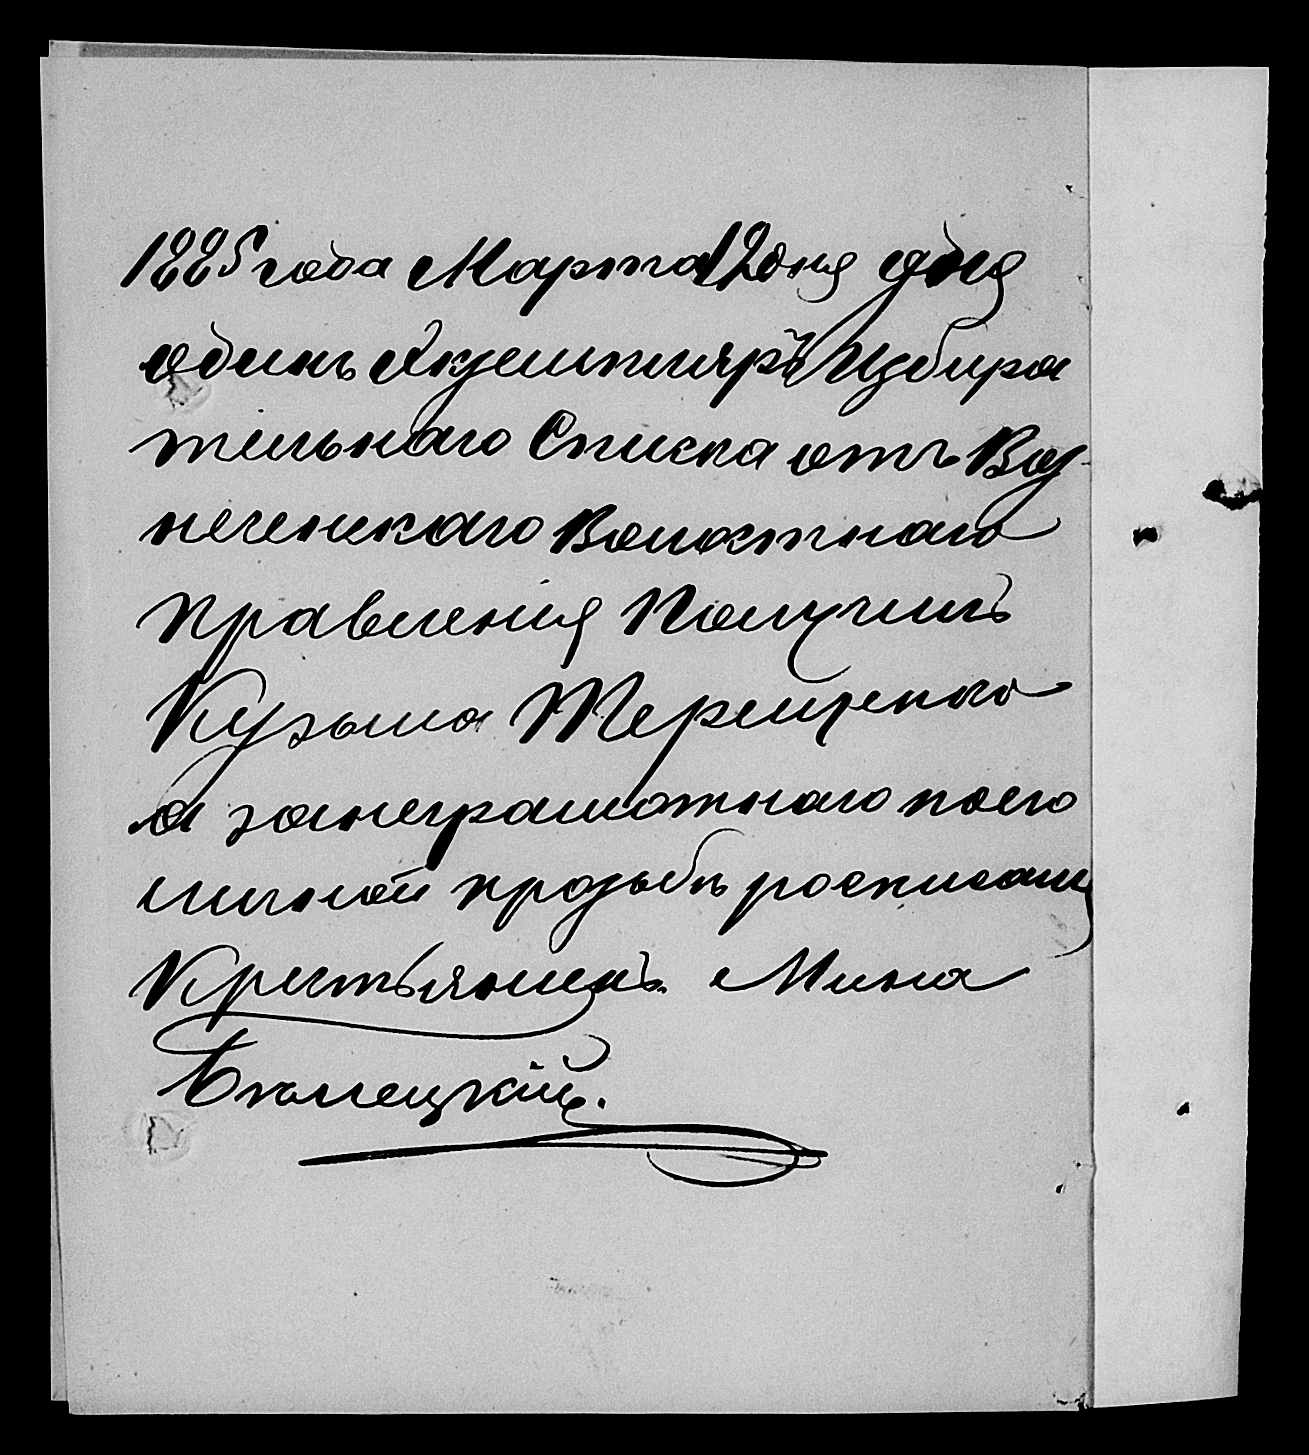 1885 года Марта 12 дня я
одинъ Акземпляръ Избира
тельнаго Списка отъ Воз-
несенскаго Волостнаго
правленія Получилъ
Кузьма Терещенко
а занеграмотнаго поего
личной прозьбѣ росписалц
Крестьянинъ Мина